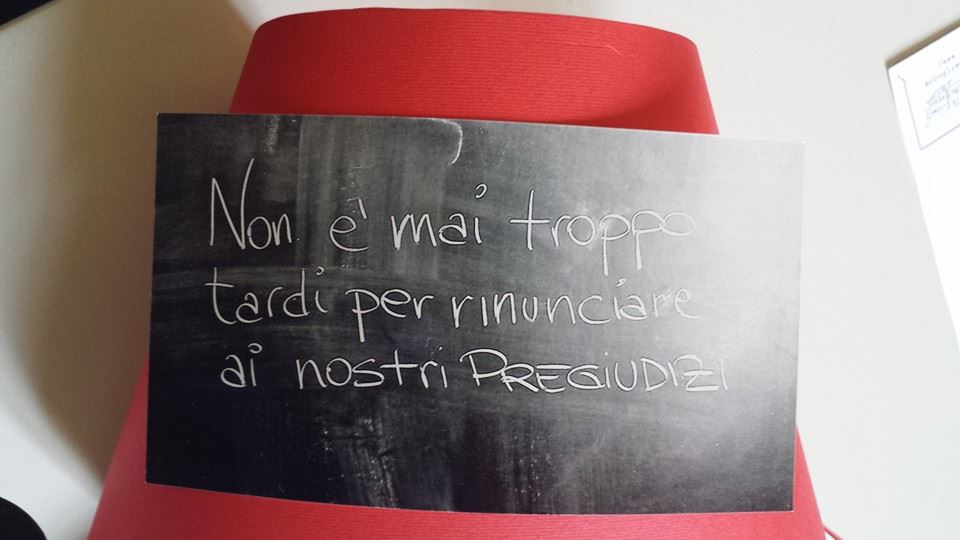 Non e' mai troppo
tardi per rinunciare
ai nostri PREGIUDIZI
Casa